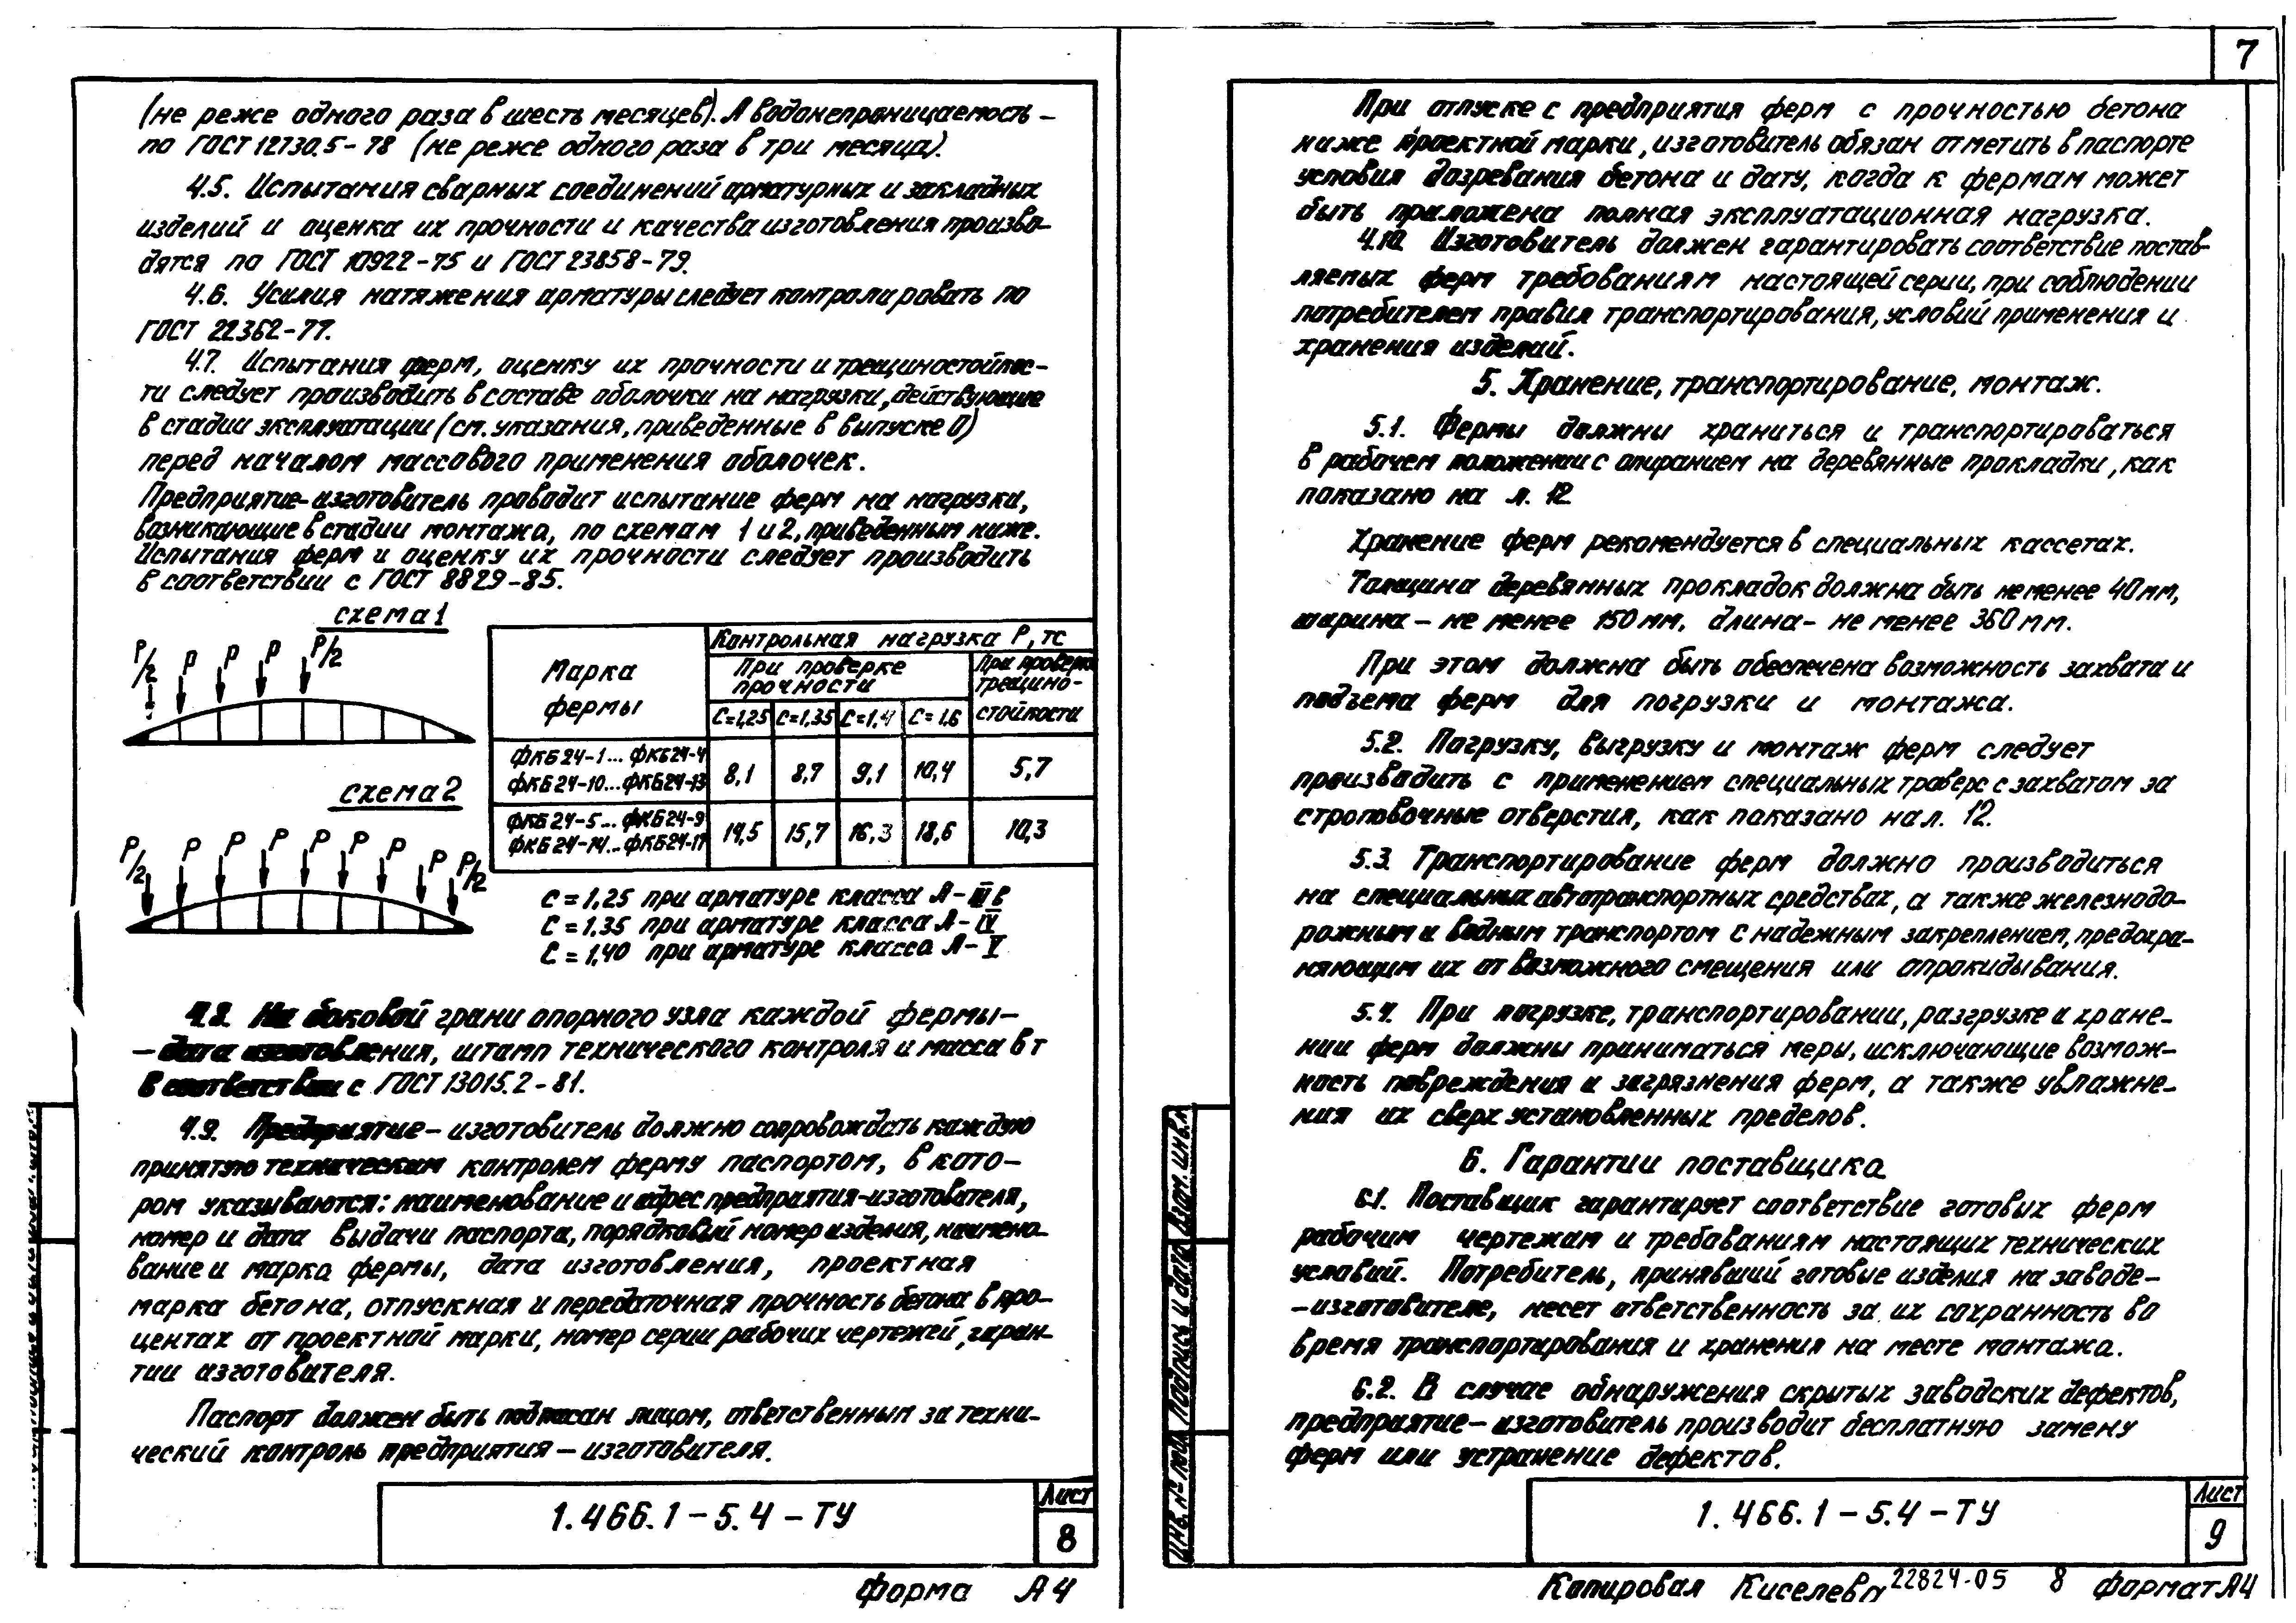 7
(не реже одного раза в шесть месяцев). А водонепроницаемость –
по ГОСТ 12730.5-78 (не реже одного раза в три месяца).
4.5. Испытания сварных соединений арматурных и закладных
изделий и оценка их прочности и качества изготовления произво-
дятся по ГОСТ 10922-75 и ГОСТ 23858-79.
4.6. Усилия натяжения арматуры следует контролировать по
ГОСТ 22362-77.
4.7. Испытания ферм, оценку их прочности и трещиностойкос-
ти следует производить в составе оболочки на нагрузки, действующие
в стадии эксплуатации (см. указания, приведенные в выпуске 0)
перед началом массового применения оболочек.
Предприятие-изготовитель проводит испытание ферм на нагрузки,
возникающие в стадии монтажа, по схемам 1 и 2, приведенным ниже.
Испытания ферм и оценку их прочности следует производить
в соответствии с ГОСТ 8829-85.
схема 1
P/2 P P P P/2
схема 2
P/2 P P P P P P P P/2
Марка фермы
Контрольная нагрузка P, тс
При проверке прочности
При проверке трещино-
стойкости
С=1,25 С=1,35 С=1,4 С=1,6
ФКБ24-1... ФКБ24-4
ФКБ24-10...ФКБ24-13
8,1 8,7 9,1 10,4 5,7
ФКБ24-5... ФКБ24-9
ФКБ24-14...ФКБ24-17
14,5 15,7 16,3 18,6 10,3
С = 1,25 при арматуре класса А-IIIв
С = 1,35 при арматуре класса А-IV
С = 1,40 при арматуре класса А-V
4.8. На боковой грани опорного узла каждой фермы –
– дата изготовления, штамп технического контроля и масса в т
в соответствии с ГОСТ 13015.2-81.
4.9. Предприятие-изготовитель должно сопровождать каждую
принятую техническим контролем ферму паспортом, в кото-
ром указываются: наименование и адрес предприятия-изготовителя,
номер и дата выдачи паспорта, порядковый номер изделия, наимено-
вание и марка фермы, дата изготовления, проектная
марка бетона, отпускная и передаточная прочность бетона в про-
центах от проектной марки, номер серии рабочих чертежей, гаран-
тии изготовителя.
Паспорт должен быть подписан лицом, ответственным за техни-
ческий контроль предприятия – изготовителя.
1.466.1-5.4-ТУ
Лист
8
Форма А4
При отпуске с предприятия ферм с прочностью бетона
ниже проектной марки, изготовитель обязан отметить в паспорте
условия дозревания бетона и дату, когда к фермам может
быть приложена полная эксплуатационная нагрузка.
4.10. Изготовитель должен гарантировать соответствие постав-
ляемых ферм требованиям настоящей серии, при соблюдении
потребителем правил транспортирования, условий применения и
хранения изделий.
5. Хранение, транспортирование, монтаж.
5.1. Фермы должны храниться и транспортироваться
в рабочем положении с опиранием на деревянные прокладки, как
показано на л. 12.
Хранение ферм рекомендуется в специальных кассетах.
Толщина деревянных прокладок должна быть не менее 40 мм,
ширина – не менее 150 мм, длина – не менее 360 мм.
При этом должна быть обеспечена возможность захвата и
подъема ферм для погрузки и монтажа.
5.2. Погрузку, выгрузку и монтаж ферм следует
производить с применением специальных траверс с захватом за
строповочные отверстия, как показано на л. 12.
5.3. Транспортирование ферм должно производиться
на специальных автотранспортных средствах, а также железнодо-
рожным и водным транспортом с надежным закреплением, предохра-
няющим их от возможного смещения или опрокидывания.
5.4. При погрузке, транспортировании, разгрузке и хране-
нии ферм должны приниматься меры, исключающие возмож-
ность повреждения и загрязнения ферм, а также увлажне-
ния их сверх установленных пределов.
6. Гарантии поставщика
6.1. Поставщик гарантирует соответствие готовых ферм
рабочим чертежам и требованиям настоящих технических
условий. Потребитель, принявший готовые изделия на заводе-
-изготовителе, несет ответственность за их сохранность во
время транспортирования и хранения на месте монтажа.
6.2. В случае обнаружения скрытых заводских дефектов,
предприятие – изготовитель производит бесплатную замену
ферм или устранение дефектов.
Инв. № подл. Подпись и дата Взам. инв. №
1.466.1-5.4-ТУ
Лист
9
Копировал Киселева 22824-05 8 Формат А4